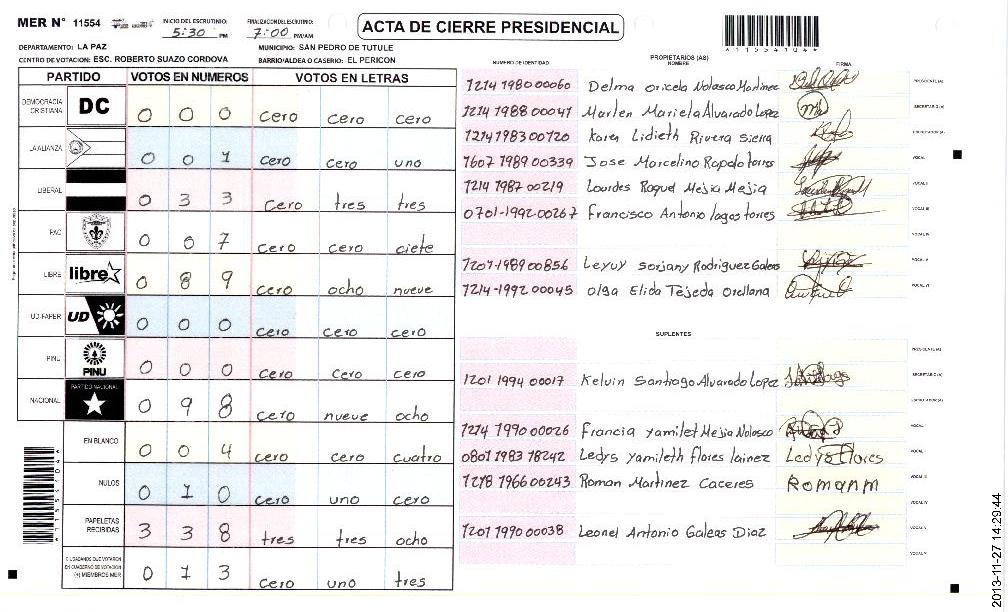 MER N° 11554
INICIO DEL ESCRUTINIO: 5:30 PM
FINALIZACION DEL ESCRUTINIO: 7:00 PM/AM
ACTA DE CIERRE PRESIDENCIAL
*11554104*
DEPARTAMENTO: LA PAZ
MUNICIPIO: SAN PEDRO DE TUTULE
CENTRO DE VOTACION: ESC. ROBERTO SUAZO CORDOVA
BARRIO/ALDEA O CASERIO: EL PERICON
PARTIDO VOTOS EN NUMEROS VOTOS EN LETRAS
DEMOCRACIA CRISTIANA DC 0 0 0 cero cero cero
LA ALIANZA 0 0 1 cero cero uno
LIBERAL 0 3 3 cero tres tres
PAC 0 0 7 cero cero ciete
LIBRE libre 0 8 9 cero ocho nueve
UD-FAPER UD 0 0 0 cero cero cero
PINU PINU 0 0 0 cero cero cero
NACIONAL PARTIDO NACIONAL 0 9 8 cero nueve ocho
EN BLANCO 0 0 4 cero cero cuatro
NULOS 0 1 0 cero uno cero
PAPELETAS RECIBIDAS 3 3 8 tres tres ocho
CIUDADANOS QUE VOTARON EN CUADERNO DE VOTACION (+) MIEMBROS MER 0 1 3 cero uno tres
NUMERO DE IDENTIDAD
PROPIETARIOS (AS)
NOMBRE
FIRMA
1214 1980 00060 Delma oricela Nolasco Martinez PRESIDENTE (A)
1214 1988 00047 Marlen Mariela Alvarado Lopez SECRETARIO (A)
1214 1983 00720 Karen Lidieth Rivera Sierra ESCRUTADOR (A)
1607 1989 00339 Jose Marcelino Rapalo torres VOCAL I
1214 1987 00219 Lourdes Raquel Mejia Mejia VOCAL II
0701-1992-00267 Francisco Antonio lagos torres VOCAL III
VOCAL IV
1201-1989 00856 Leyuy sorjany Rodriguez Galeas VOCAL V
1214-1992 00045 olga Elida Tejeda Orellana VOCAL VI
SUPLENTES
PRESIDENTE (A)
1201 1994 00017 Kelvin Santiago Alvarado Lopez SECRETARIO (A)
ESCRUTADOR (A)
1214 1990 00026 Francia yamilet Mejia Nolasco VOCAL I
0801 1983 78242 Ledys yamileth flores lainez Ledys Flores VOCAL II
1218 1966 00243 Roman Martinez Caceres Romanm VOCAL III
VOCAL IV
1201 1990 00038 Leonel Antonio Galeas Diaz VOCAL V
VOCAL VI
2013-11-27 14:29:44